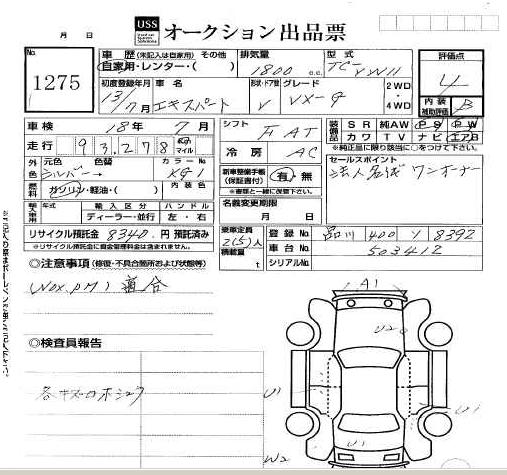 USS オークション出品票
月 日
No. 1275
車歴 (未記入は自家用) その他
自家用・レンター・( )
排気量 1800 c.c.
型式
評価点 4
内装補助評価 B
初度登録年月 13/7月
車名 エキスパート
形状・ドア数 V
グレード VX-G
2WD・4WD
車検 18年 7月
走行 93,278 Km マイル
シフト FAT
冷房 AC
装備品 SR 純AW PS PW
カワ TV ナビ エアB
※純正品に限り該当に○をつけて下さい。
外色 元色 色替 シルバー→
カラーNo
内装色
燃料 ガソリン・軽油・( )
新車整備手帳(保証書付) 有・無
※書類と一緒に保管下さい。
セールスポイント
法人名義 ワンオーナー
輸入車用 年式 輸入区分 ハンドル
ディーラー・並行 左・右
名義変更期限
月 日
リサイクル預託金 8340 円 預託済み
※リサイクル預託金に資金管理料金は含まれません。
乗車定員 2(5)人
積載量 t
登録No 品川 400 8392
車台No 503412
シリアルNo
◎注意事項 (修復・不具合箇所および状態等)
(NOX.PM) 適合
◎検査員報告
各キズ
A1
U2
U1
U1
U1
W2